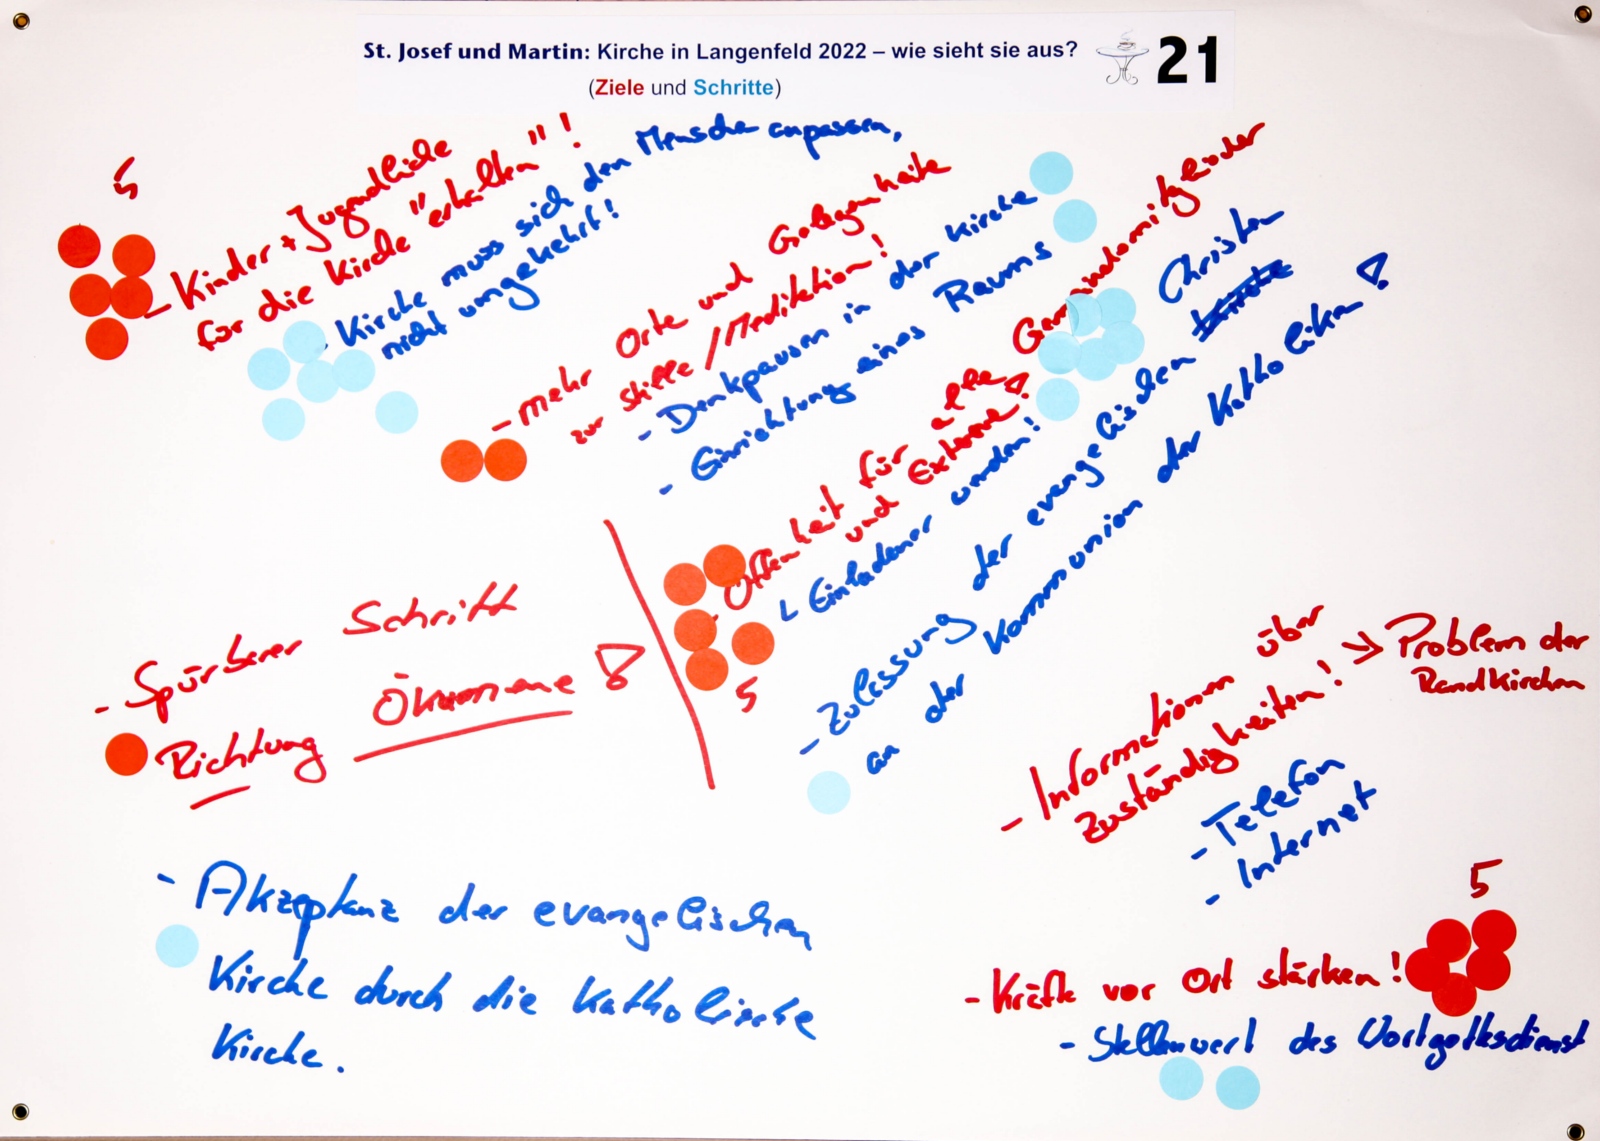 St. Josef und Martin: Kirche in Langenfeld 2022 – wie sieht sie aus?
(Ziele und Schritte)
21
5
- Kinder + Jugendliche
für die Kirche "erhalten"!
- Kirche muss sich den Mensche anpassen,
nicht umgekehrt!
- mehr Orte und Gelegenheite
zur Stille / Meditation!
- Denkpausen in der Kirche
- Einrichtung eines Raums
- Offenheit für alle Gemeindemitglieder
und Externe!
5
Einladener werden!
- Zulassung der evangelischen Christen
an der Kommunion der Katholiken!
- Spürbarer Schritt
Richtung Ökumene!
- Akzeptanz der evangelischen
Kirche durch die Katholische
Kirche.
- Informationen über
Zuständigkeiten! → Problem der
Randkirchen
- Telefon
- Internet
5
- Kräfte vor Ort stärken!
- Stellenwert des Wortgottesdienst